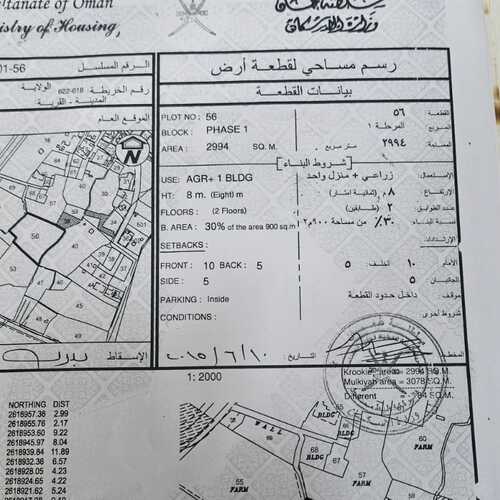 ltanate of Oman
nistry of Housing,
وزارة الإسكان
01-56
الرقم المسلسل
رسم مساحي لقطعة أرض
الولاية
رقم الخريطة: 618-622
المدينة - القرية:
بيانات القطعة
الموقع العام
PLOT NO : 56
القطعة: ٥٦
BLOCK : PHASE 1
المربع: المرحلة ١
AREA : 2994 SQ. M.
المساحة: ٢٩٩٤ متر مربع
شروط البناء
USE: AGR+ 1 BLDG
الإستعمال: زراعي + منزل واحد
HT: 8 m. (Eight) m
الإرتفاع: ٨ م (ثمانية امتار)
FLOORS : (2 Floors)
عدد الطوابق: ٢ (طابقين)
B. AREA : 30% of the area 900 sq.m
نسبة البناء: ٣٠٪ من مساحة ٩٠٠م٢
SETBACKS :
الإرتدادات:
FRONT : 10 BACK : 5
الأمام ١٠ الخلف ٥
SIDE : 5
الجانبان ٥
PARKING : Inside
موقف: داخل حدود القطعة
CONDITIONS :
شروط أخرى
الإسقاط
التاريخ: ٢٠١٥/٦/١٠
المخطط
1: 2000
Krookie area = 2994 SQ.M.
Mulkiyah area = 3078 SQ.M.
Different = 84 SQ.M.
NORTHING DIST
2618957.36 2.99
2618955.76 2.17
2618953.60 9.22
2618945.97 8.04
2618939.84 11.89
2618932.36 6.57
2618928.05 4.23
2618924.65 4.22
2618921.60 5.24
WALL
BLDG
68
BLDG
67
66
65
FARM
60
FARM
57
FARM